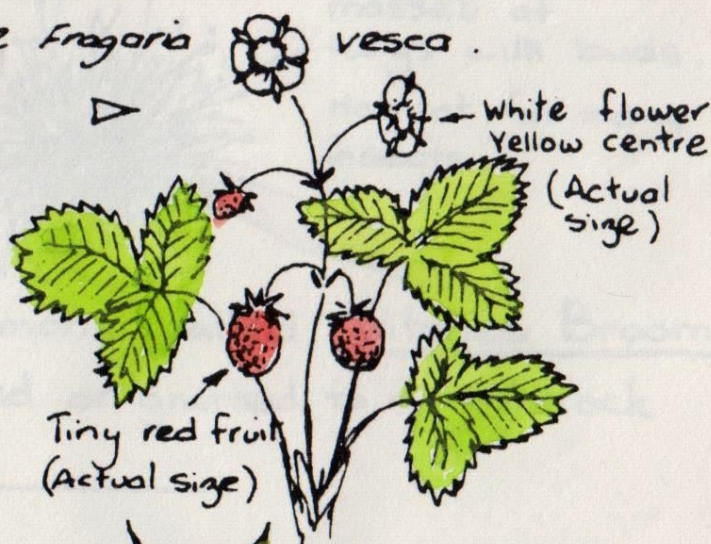 Fragaria vesca.
White flower
Yellow centre
(Actual
size)
Tiny red fruit
(Actual size)